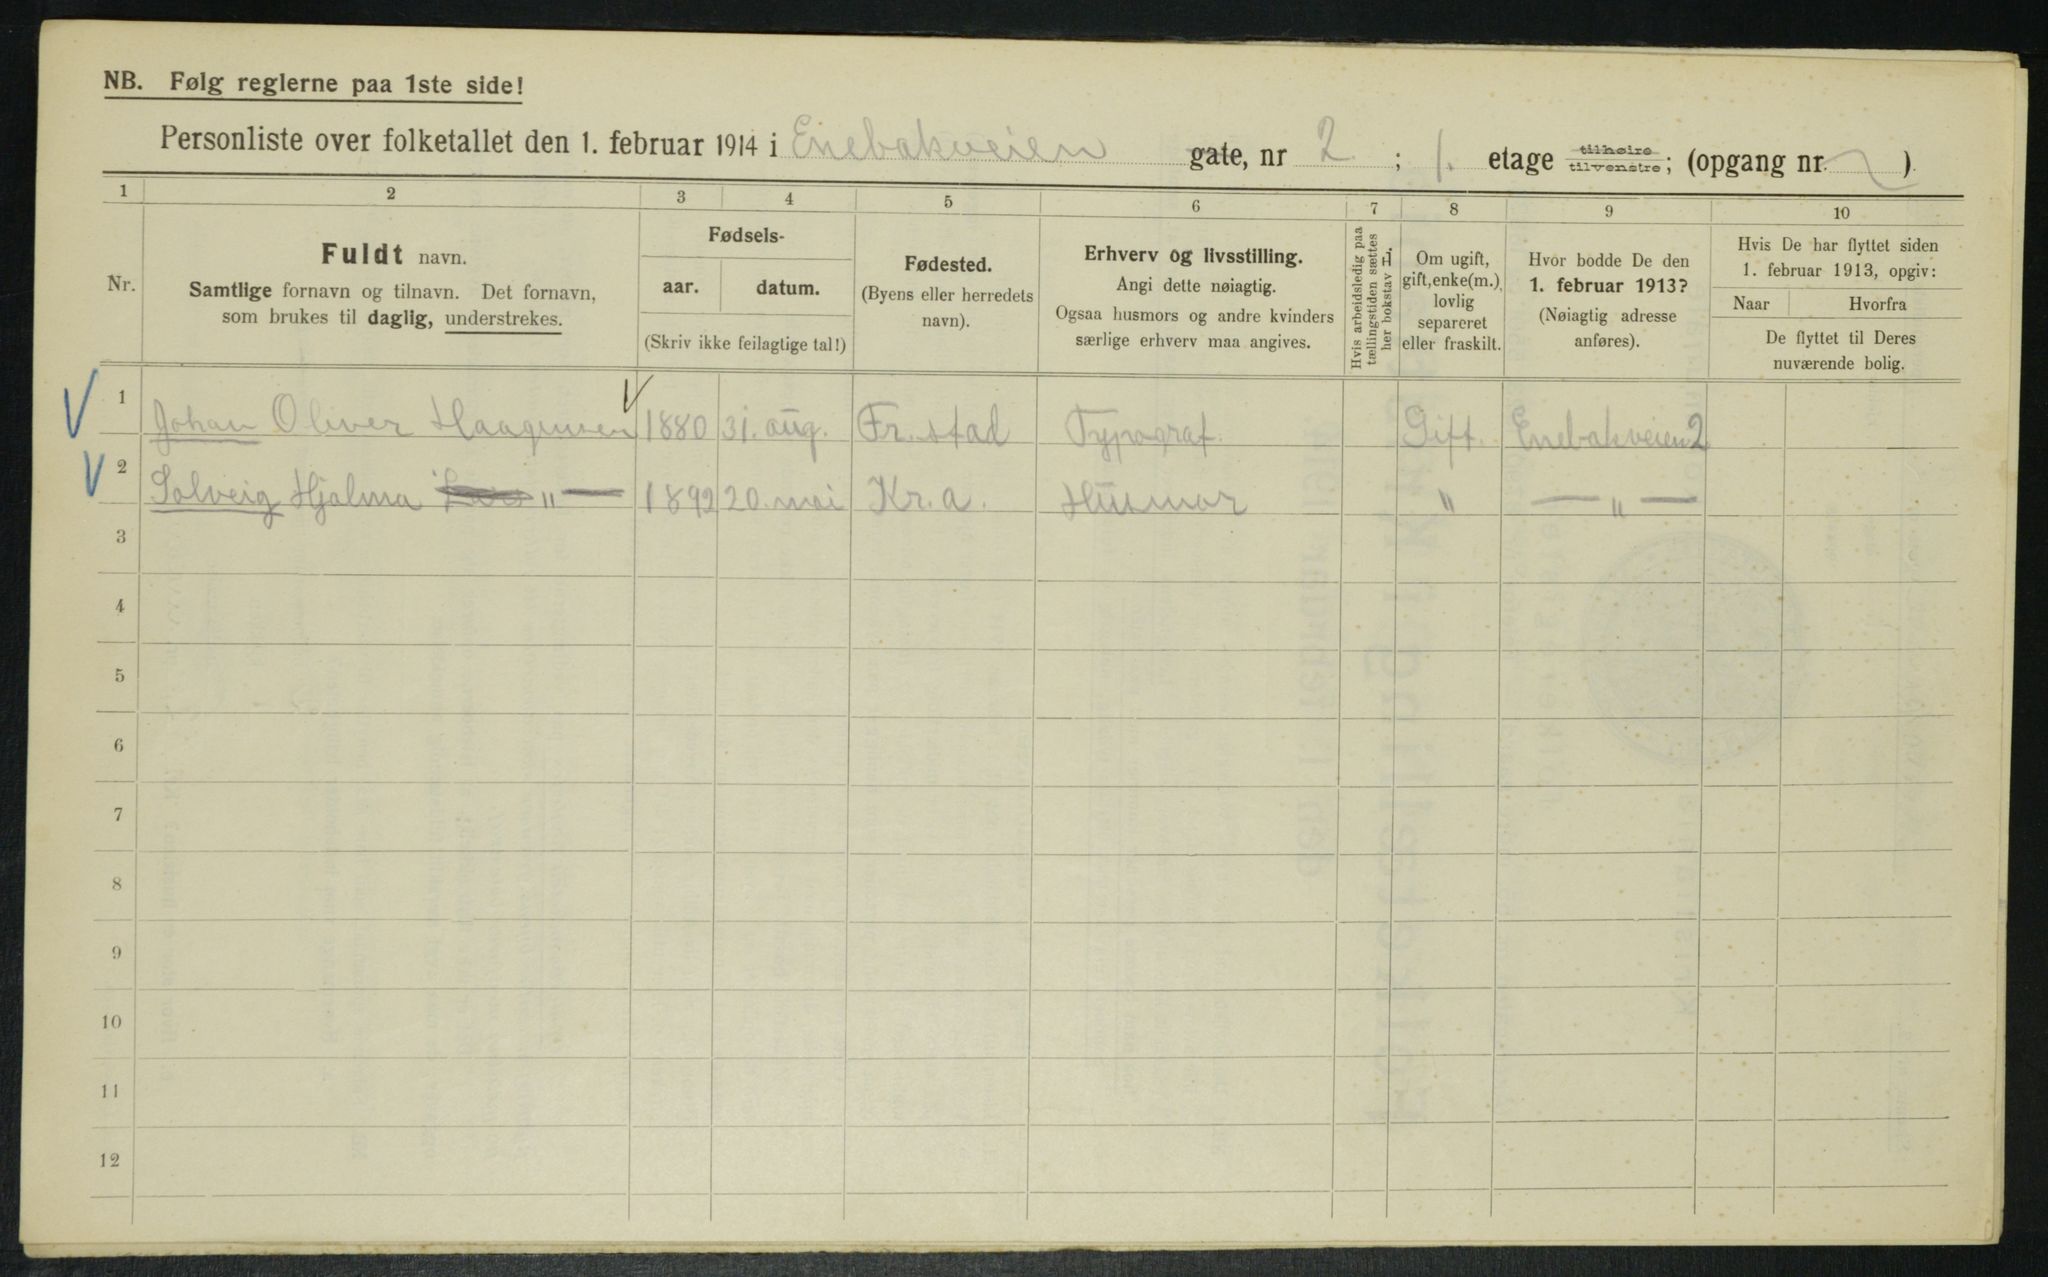 NB. Følg reglerne paa 1ste side!
Personliste over folketallet den 1. februar 1914 i Enebakveien gate, nr 2 ; 1. etage tilhøire tilvenstre; (opgang nr. ).
1 2 3 4 5 6 7 8 9 10
Nr.
Fuldt navn.
Samtlige fornavn og tilnavn. Det fornavn,
som brukes til daglig, understrekes.
Fødsels-
aar. datum.
(Skriv ikke feilagtige tal!)
Fødested.
(Byens eller herredets
navn).
Erhverv og livsstilling.
Angi dette nøiagtig.
Ogsaa husmors og andre kvinders
særlige erhverv maa angives.
Hvis arbeidsledig paa
tællingstiden sættes
her bokstav L.
Om ugift,
gift, enke(m.),
lovlig
separeret
eller fraskilt.
Hvor bodde De den
1. februar 1913?
(Nøiagtig adresse
anføres).
Hvis De har flyttet siden
1. februar 1913, opgiv:
Naar Hvorfra
De flyttet til Deres
nuværende bolig.
1 Johan Oliver Haagensen 1880 31. aug. Fr. stad Typograf. Gift. Enebakveien 2
2 Solveig Hjalma — " — 1892 20. mai Kr.a. Husmor " — " —
3
4
5
6
7
8
9
10
11
12